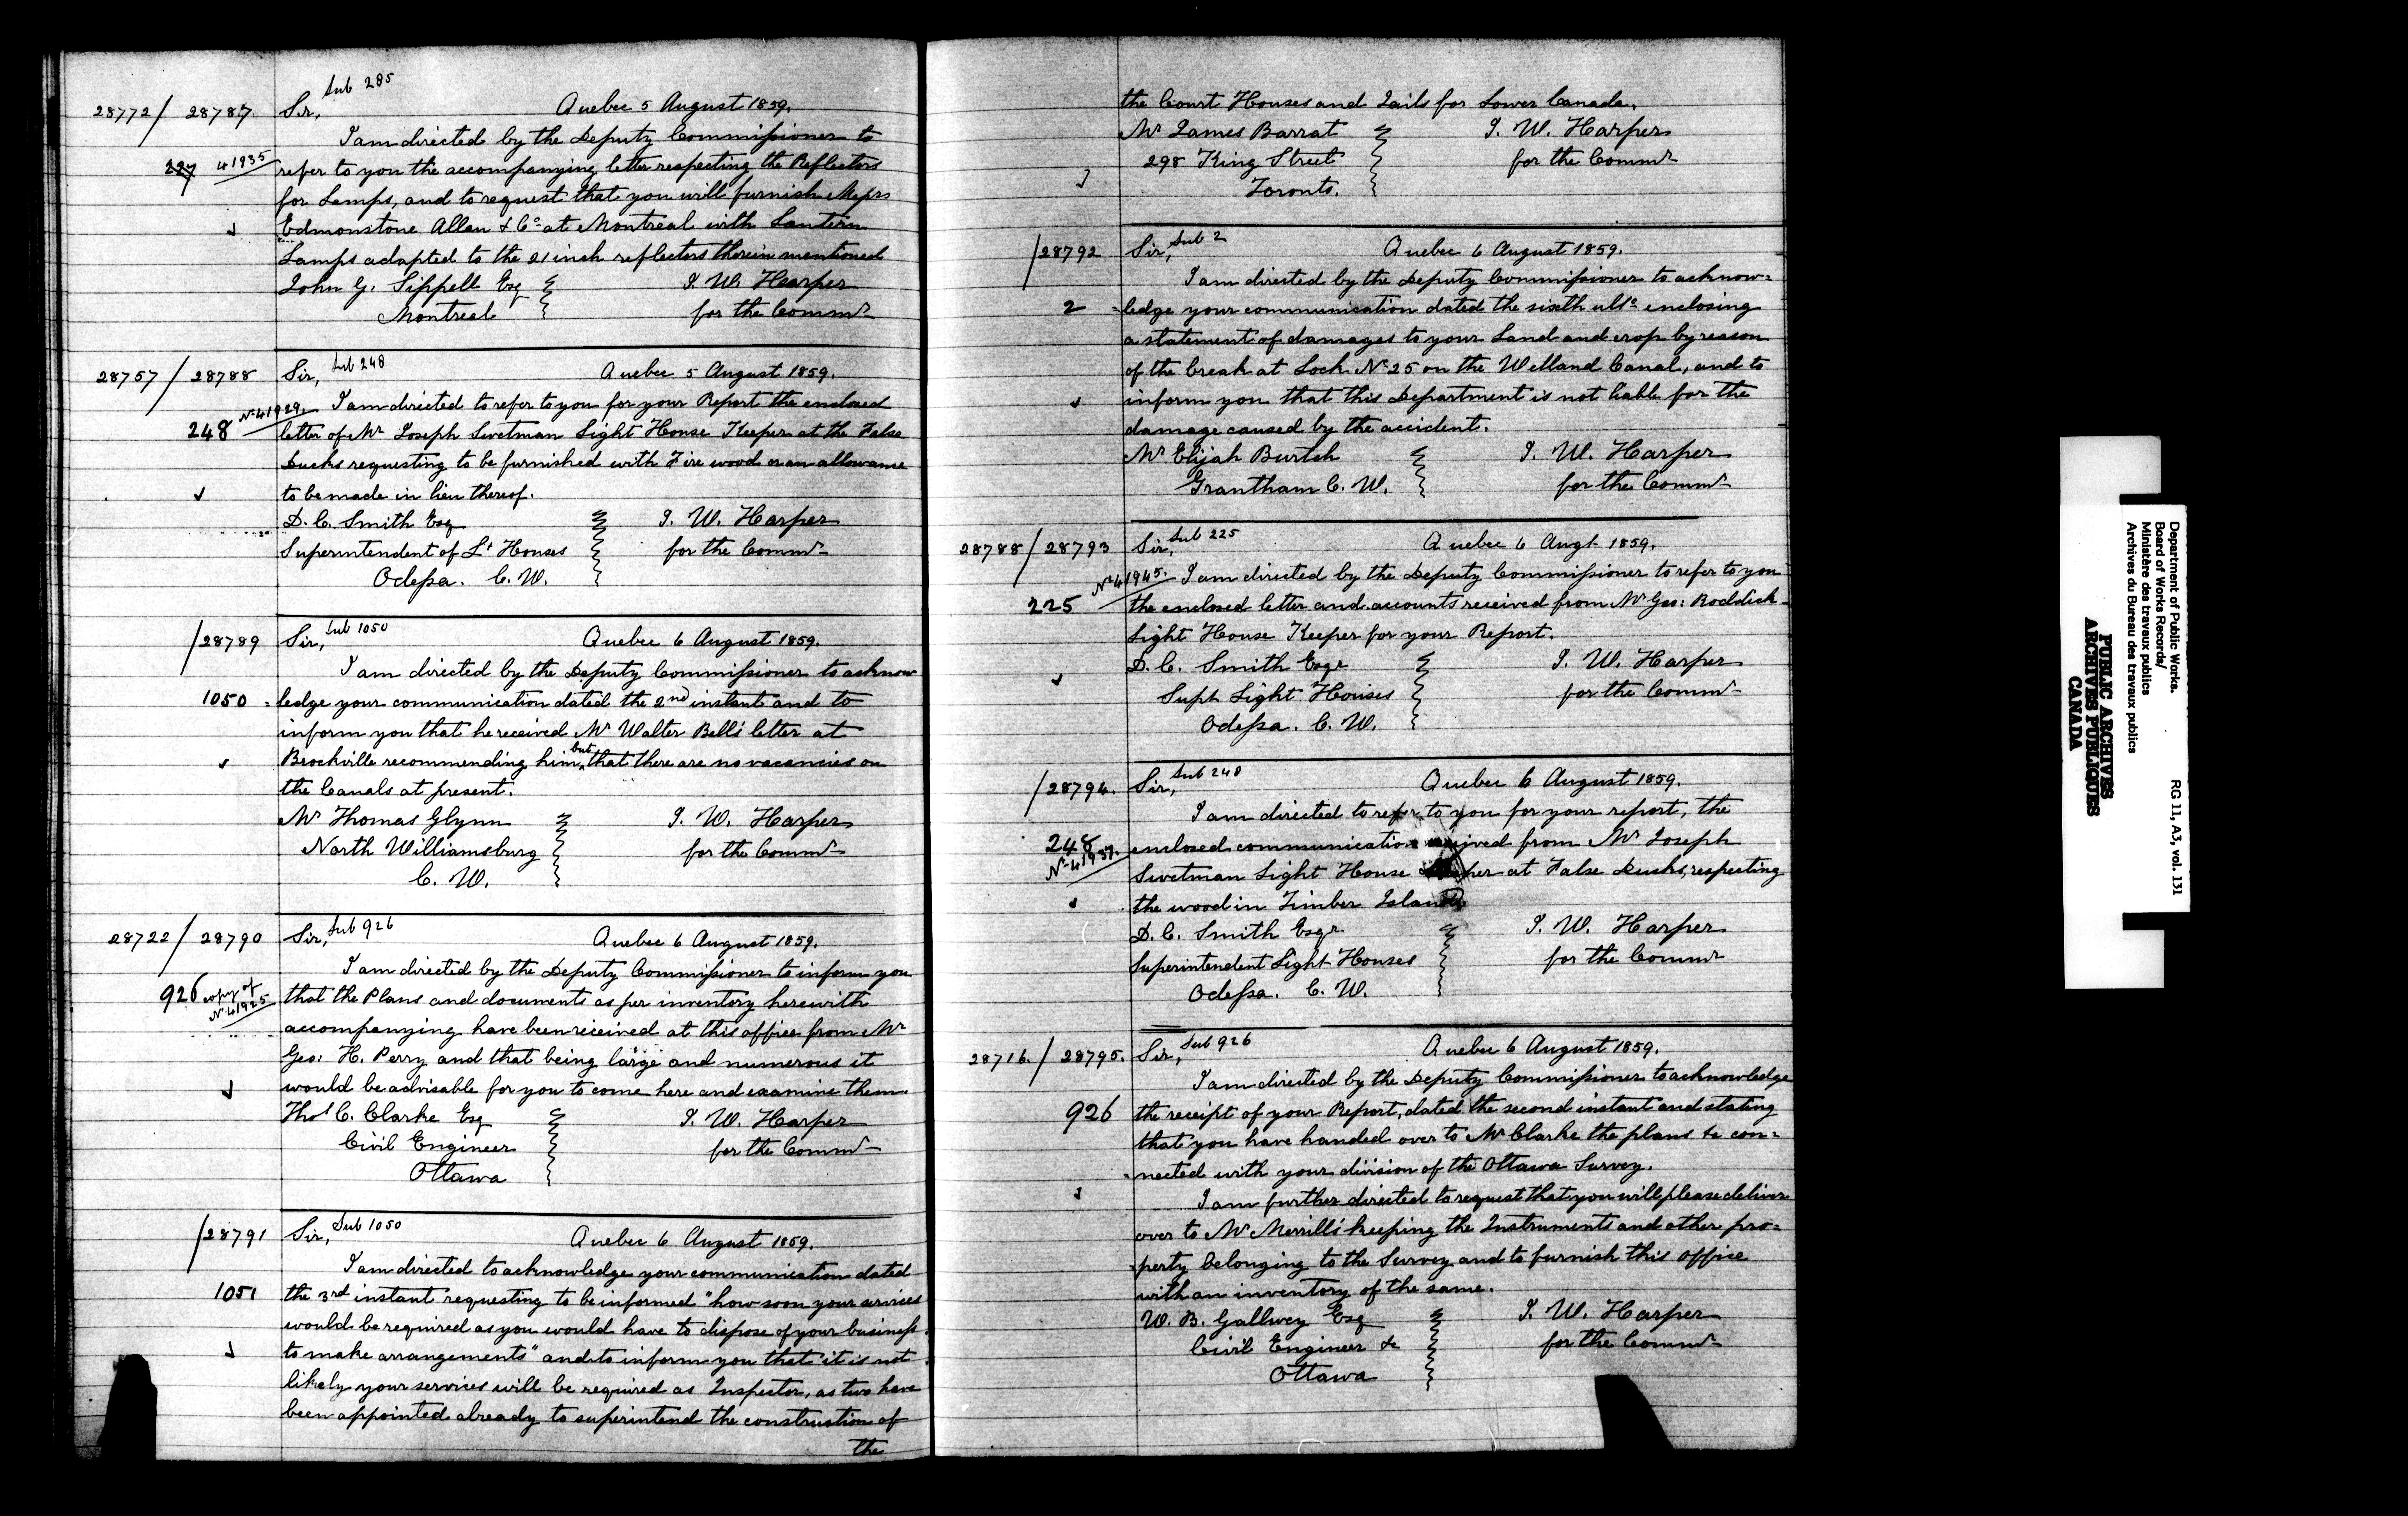 Sub 285
28772/28787. Sir, Quebec 5 August 1859.
I am directed by the Deputy Commissioner to
227 41935 refer to you the accompanying letter respecting the Reflectors
for Lamps, and to request that you will furnish Messrs
Edmonstone Allan & Co at Montreal with Lantern
Lamps adapted to the 21 inch reflectors therein mentioned
John G. Sippell Esq J. W. Harper
Montreal for the Commr
28757/28788 Sir, Sub 248 Quebec 5 August 1859.
No 41929. I am directed to refer to you for your Report the enclosed
248 letter of Mr Joseph Swetman Light House Keeper at the False
Ducks requesting to be furnished with Fire wood or an allowance
to be made in lieu thereof.
D. C. Smith Esq J. W. Harper
Superintendent of Lt Houses for the Commr
Odessa. C. W.
/28789 Sir, Sub 1050 Quebec 6 August 1859.
I am directed by the Deputy Commissioner to acknow
1050 ledge your communication dated the 2nd instant and to
inform you that he received Mr Walter Bell's letter at
Brockville recommending him, but that there are no vacancies on
the Canals at present.
Mr Thomas Glynn J. W. Harper
North Williamsburg for the Commr
C. W.
28722/28790 Sir, Sub 926 Quebec 6 August 1859.
I am directed by the Deputy Commissioner to inform you
926 copy of No 41925 that the Plans and documents as per inventory herewith
accompanying have been received at this office from Mr
Geo: H. Perry and that being large and numerous it
would be advisable for you to come here and examine them
Thos C. Clarke Esq J. W. Harper
Civil Engineer for the Commr
Ottawa
/28791 Sir, Sub 1050 Quebec 6 August 1859.
I am directed to acknowledge your communication dated
1051 the 3rd instant requesting to be informed "how soon your services
would be required as you would have to dispose of your business
to make arrangements" and to inform you that it is not
likely your services will be required as Inspector, as two have
been appointed already to superintend the construction of
the
the Court Houses and Jails for Lower Canada.
Mr James Barrat J. W. Harper
298 King Street for the Commr
Toronto.
/28792 Sir, Sub 2 Quebec 6 August 1859.
I am directed by the Deputy Commissioner to acknow=
2 =ledge your communication dated the sixth ulto enclosing
a statement of damages to your Land and crop by reason
of the break at Lock No 25 on the Welland Canal, and to
inform you that this Department is not liable for the
damage caused by the accident.
Mr Elijah Burtch J. W. Harper
Grantham C. W. for the Commr
28788/28793 Sir, Sub 225 Quebec 6 Augt 1859.
No 41945. I am directed by the Deputy Commissioner to refer to you
225 the enclosed letter and accounts received from Mr Geo: Roddick
Light House Keeper for your Report.
D. C. Smith Esqr J. W. Harper
Supt Light Houses for the Commr
Odessa. C. W.
/28794. Sir, Sub 248 Quebec 6 August 1859.
I am directed to refer to you for your report, the
248 enclosed communication received from Mr Joseph
No 41937. Swetman Light House Keeper at False Ducks, respecting
the wood in Timber Island
D. C. Smith Esqr J. W. Harper
Superintendent Light Houses for the Commr
Odessa. C. W.
28716./28795. Sir, Sub 926 Quebec 6 August 1859.
I am directed by the Deputy Commissioner to acknowledge
926 the receipt of your Report, dated the second instant and stating
that you have handed over to Mr Clarke the plans &c con=
=nected with your division of the Ottawa Survey.
I am further directed to request that you will please deliver
over to Mr Merrill's keeping the Instruments and other pro=
=perty belonging to the Survey and to furnish this office
with an inventory of the same.
W. B. Gallwey Esq J. W. Harper
Civil Engineer &c for the Commr
Ottawa
Department of Public Works.
Board of Works Records/
Ministère des travaux publics
Archives du Bureau des travaux publics
RG 11, A3, vol. 131
PUBLIC ARCHIVES
ARCHIVES PUBLIQUES
CANADA